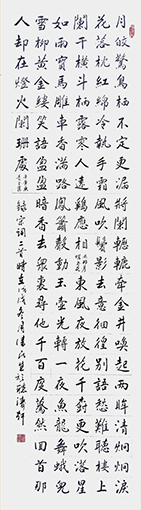 月皎驚烏棲不定更漏將闌轣轆牽金井喚起兩眸清炯炯淚
花落枕紅綿冷執手霜風吹鬢影去意徊徨別語愁難聽樓上
闌干橫斗柄露寒人遠鷄相應東風夜放花千樹更吹落星
如雨寶馬雕車香滿路鳳簫聲動玉壺光轉一夜魚龍舞蛾兒
雪柳黃金縷笑語盈盈暗香去衆裏尋他千百度驀然回首那
人却在燈火闌珊處 錄宋詞二首時在戊戌